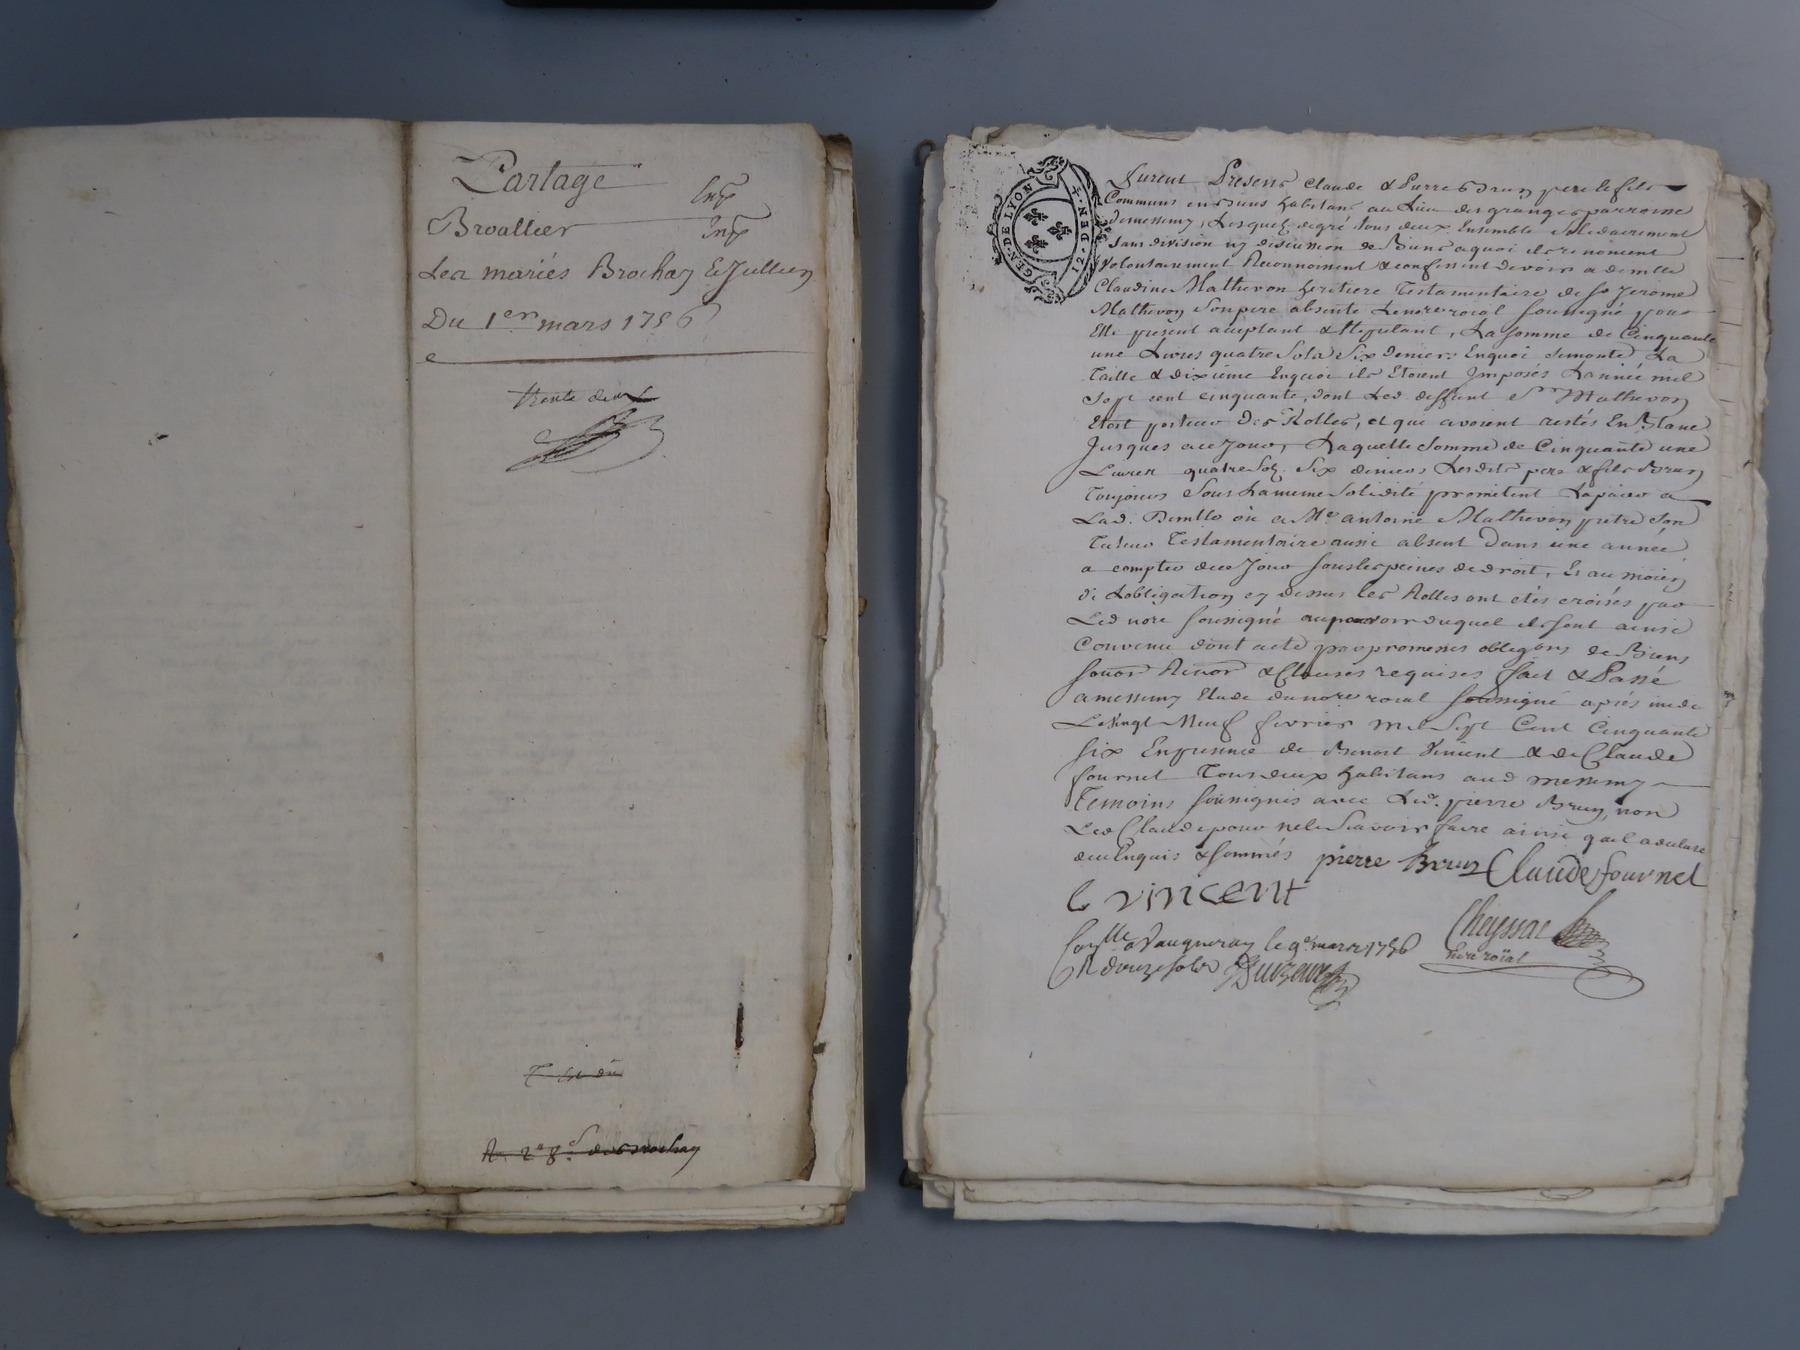 Partage
Broallier
Les mariés Brochay & Jullien
Du 1er mars 1756
trente deux
GEN. DE LYON
12. DEN. 4
furent Presens Claude & Pierre Brun pere & fils
Communs en Biens habitans au Lieu des granges parroisse
de messimy, Lesquels de gré tous deux Ensemble solidairement
sans division ny discussion de Biens a quoi ils renoncent
volontairement Reconnoissent & confessent devoir a demlle
Claudine Mathevon heritiere Testamentaire de Sr Jerome
Mathevon Son pere absente Le nore roial soussigné pour
Elle present acceptant & stipulant, La somme de Cinquante
une Livres quatre Sols Six deniers En quoi se monte La
Taille & dixième En quoi ils Etoient Imposés L'année mil
Sept cent cinquante, dont Led. deffunt Sr Mathevon
Etoit porteur Des Rolles, et qui avoient restés En Blanc
Jusques a ce Jour, Laquelle Somme de Cinquante une
Livres quatre Sols Six deniers Lesdits pere & fils Brun
Toujours Sous La meme Solidité promettent La paier a
Lad. Demlle ou a Me antoine Mathevon pretre Son
Tuteur Testamentaire aussi absent Dans une année
a compter de ce Jour sous les peines de droit, Et au moien
de L'obligation cy dessus les Rolles ont etés croisés par
Led nore soussigné au pouvoir duquel ils sont ainsi
Convenu dont acte par promesses obligons de Biens
soumons Renons & Clauses requises fait & Passé
a messimy Etude du nore roial soussigné après midi
Le Vingt Neuf fevrier mil Sept Cent Cinquante
six En presence de Benoit Vincent & de Claude
fournel Tous deux habitans aud messimy
Temoins soussignés avec Led. pierre Brun, non
Led Claude pour ne le Scavoir faire ainsi qu'il a declaré
de ce Enquis & sommés pierre Brun Claude fournel
b vincent
Conllé a Vaugneray le 9e mars 1756 Cheyssac
R douze sols nore roial